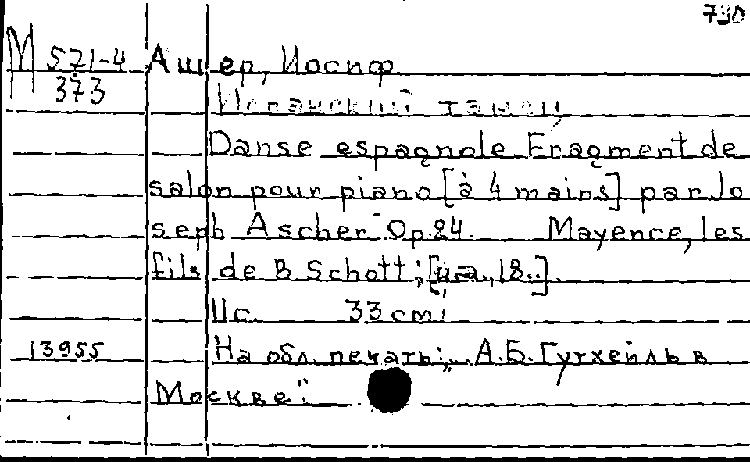 730
М 571-4 Ашер, Иосиф
373
Испанский танец
Danse espagnole Fragment de
salon pour piano [à 4 mains] par Jo
seph Ascher Op. 24. Mayence, les
fils de B. Schott; [и-а, 18..].
11с. 33 cm;
13955 На обл. печать: „А.Б. Гутхейль в
Москве".